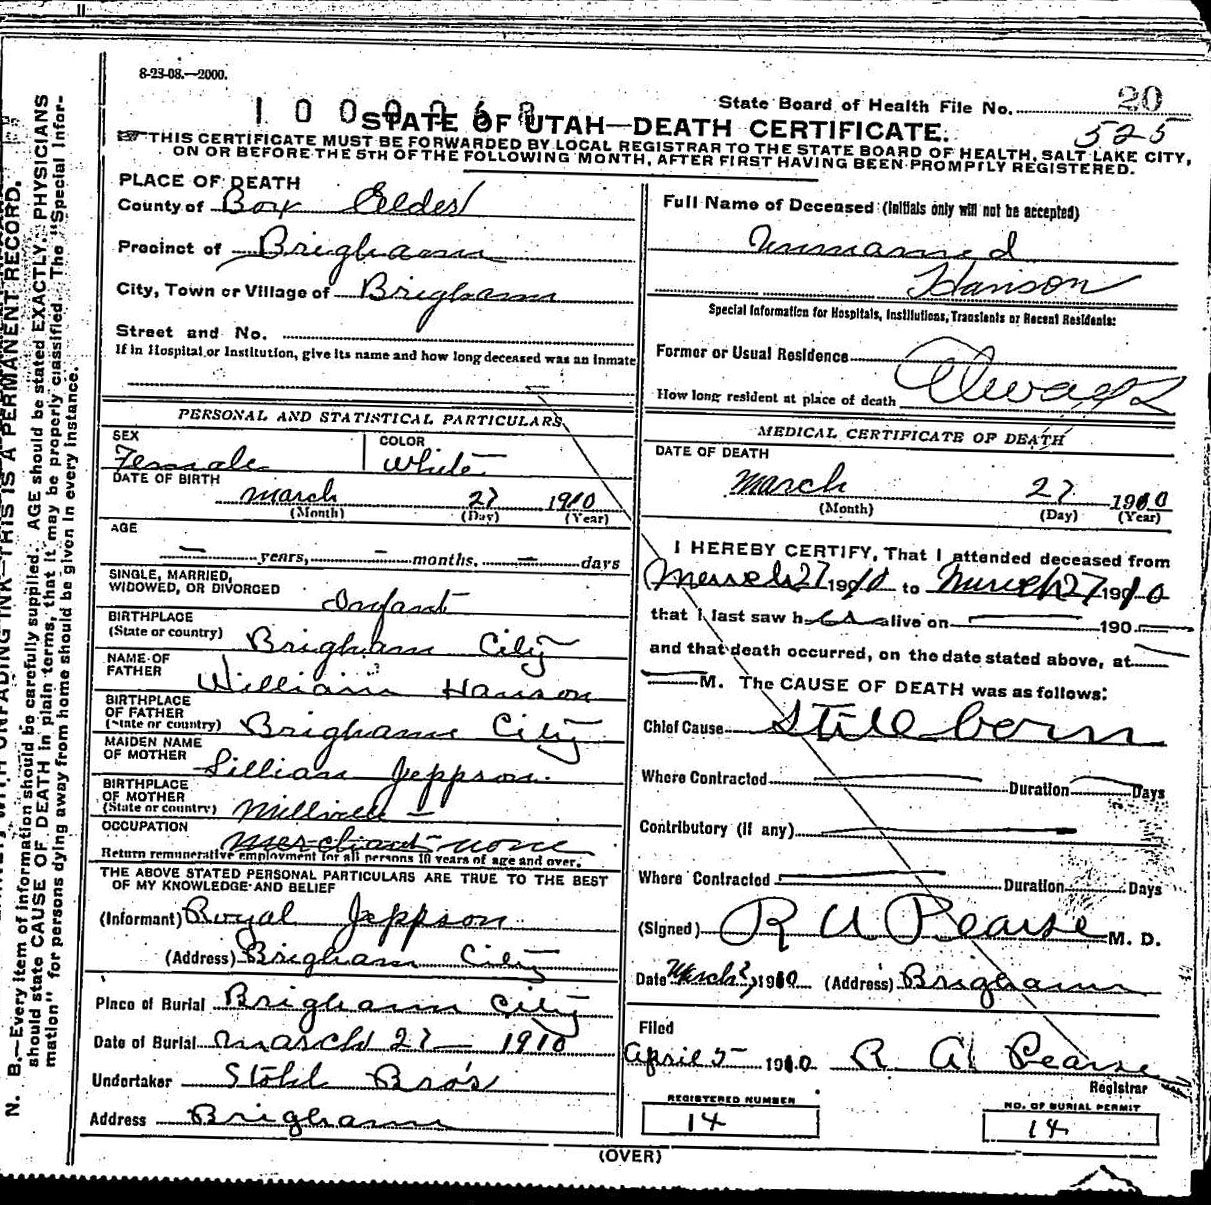 8-23-08.—2000.
State Board of Health File No. 20
525
STATE OF UTAH—DEATH CERTIFICATE.
THIS CERTIFICATE MUST BE FORWARDED BY LOCAL REGISTRAR TO THE STATE BOARD OF HEALTH, SALT LAKE CITY,
ON OR BEFORE THE 5TH OF THE FOLLOWING MONTH, AFTER FIRST HAVING BEEN PROMPTLY REGISTERED.
PLACE OF DEATH
County of Box Elder
Precinct of Brigham
City, Town or Village of Brigham
Street and No.
If in Hospital or Institution, give its name and how long deceased was an inmate
PERSONAL AND STATISTICAL PARTICULARS
SEX Female COLOR White
DATE OF BIRTH
March 27 1910
(Month) (Day) (Year)
AGE
— years, — months, — days
SINGLE, MARRIED,
WIDOWED, OR DIVORCED Infant
BIRTHPLACE
(State or country) Brigham City
NAME OF
FATHER William Hanson
BIRTHPLACE
OF FATHER
(State or country) Brigham City
MAIDEN NAME
OF MOTHER Lillian Jeppson
BIRTHPLACE
OF MOTHER
(State or country) Millville
OCCUPATION Merchant none
Return remunerative employment for all persons 10 years of age and over.
THE ABOVE STATED PERSONAL PARTICULARS ARE TRUE TO THE BEST
OF MY KNOWLEDGE AND BELIEF
(Informant) Royal Jeppson
(Address) Brigham City
Place of Burial Brigham City
Date of Burial March 27 — 1910
Undertaker Stohl Bros
Address Brigham
Full Name of Deceased (Initials only will not be accepted)
Unnamed
Hanson
Special Information for Hospitals, Institutions, Transients or Recent Residents:
Former or Usual Residence
How long resident at place of death Always
MEDICAL CERTIFICATE OF DEATH
DATE OF DEATH
March 27 1910
(Month) (Day) (Year)
I HEREBY CERTIFY, That I attended deceased from
March 27 1910 to March 27 1910
that I last saw her alive on — 190
and that death occurred, on the date stated above, at
M. The CAUSE OF DEATH was as follows:
Chief Cause Still born
Where Contracted Duration Days
Contributory (if any)
Where Contracted Duration Days
(Signed) R A Pearse M. D.
Date March 1910 (Address) Brigham
Filed
April 5 1910 R. A. Pearse
Registrar
REGISTERED NUMBER
14
NO. OF BURIAL PERMIT
14
(OVER)
N. B.—Every item of information should be carefully supplied. AGE should be stated EXACTLY. PHYSICIANS
should state CAUSE OF DEATH in plain terms, that it may be properly classified. The "Special Infor-
mation" for persons dying away from home should be given in every instance.
WITH UNFADING INK—THIS IS A PERMANENT RECORD.